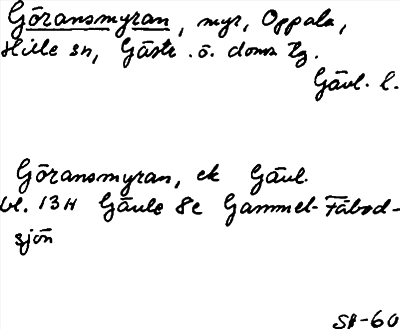 Göransmyran, myr, Oppala,
Hille sn, Gästr. ö. doms tg.
Gävl. l.
Göransmyran, ek Gävl.
bl. 13H Gävle 8c Gammel-Fäbod-
sjön
SH-60